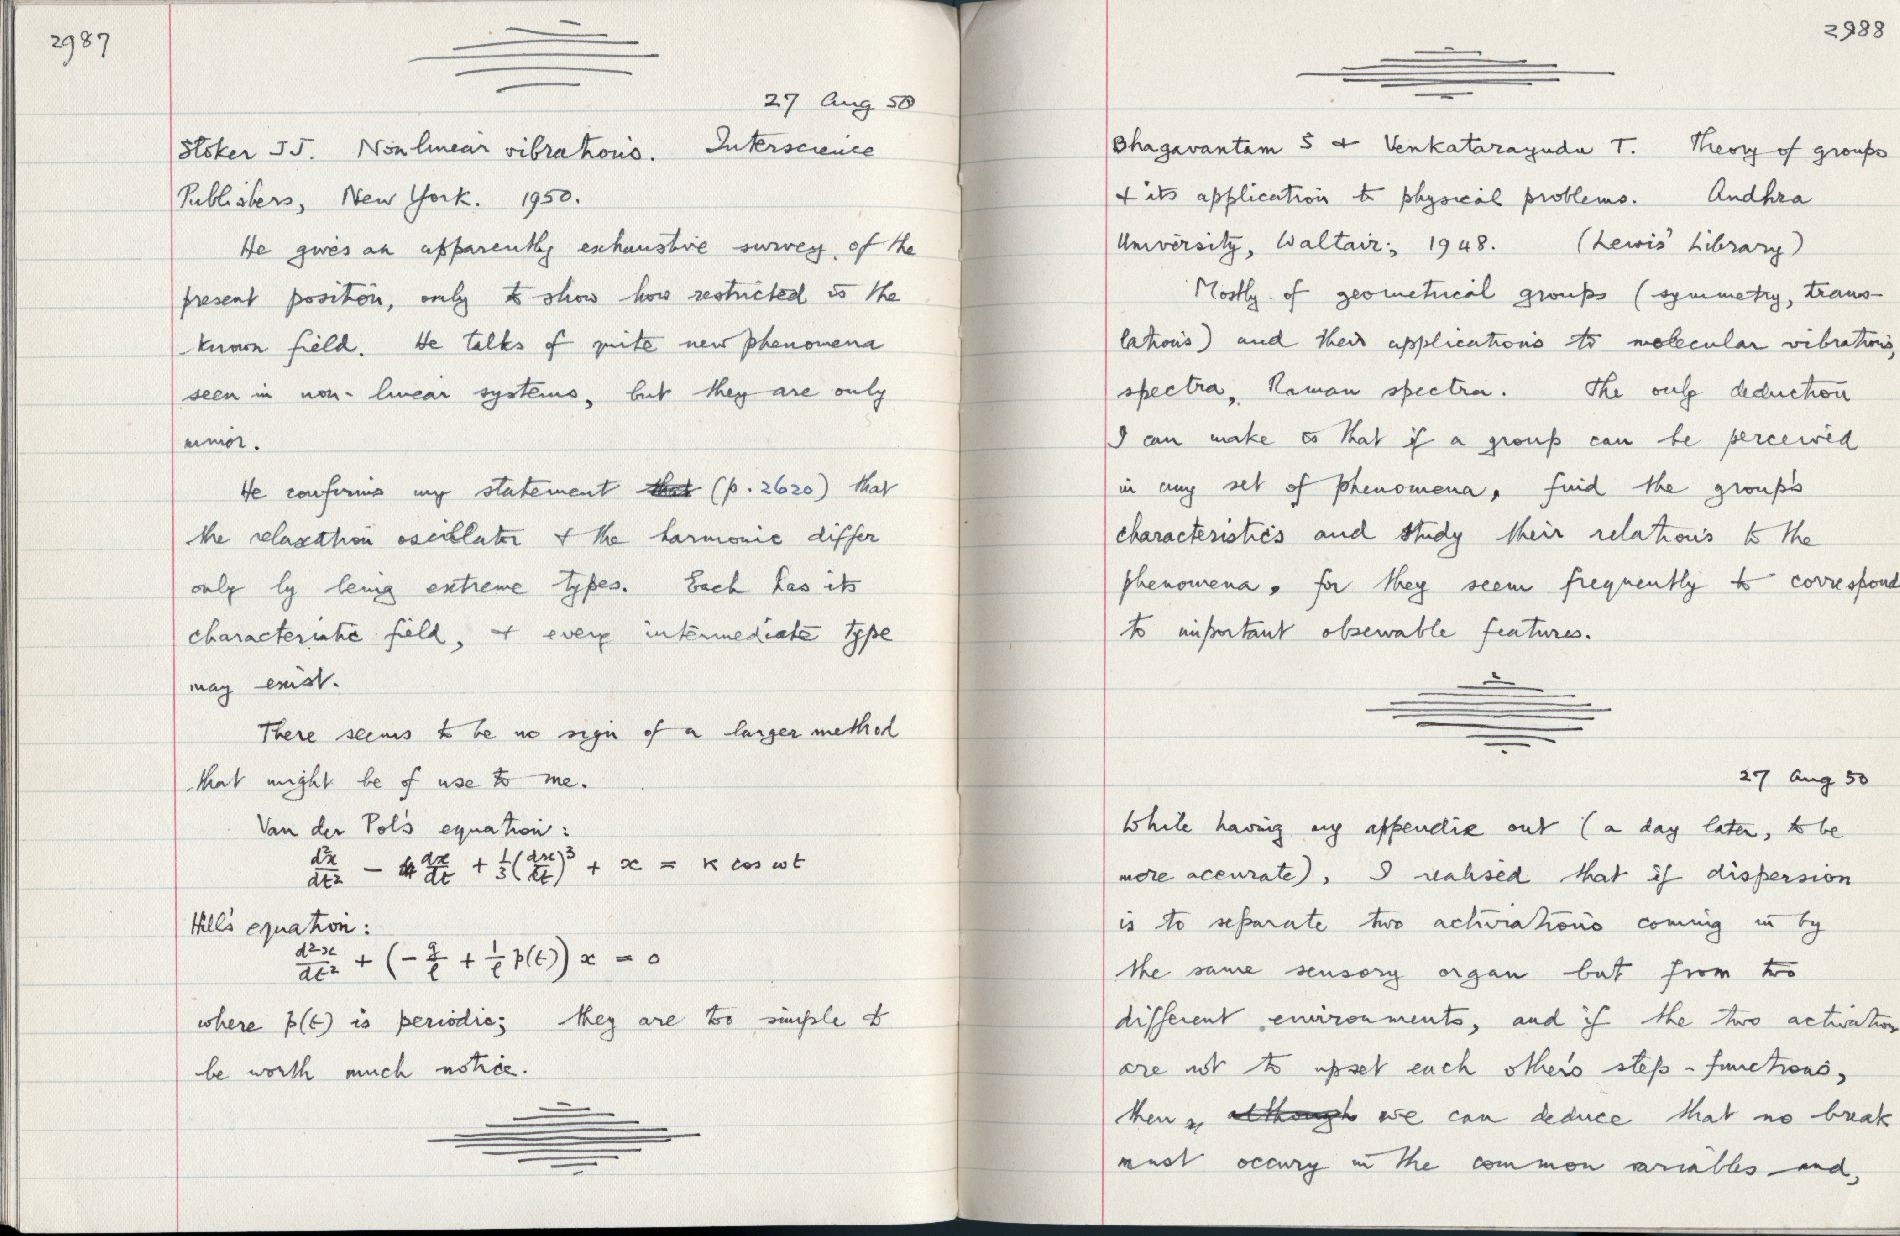 2987
27 Aug 50
Stoker JJ. Nonlinear vibrations. Interscience
Publishers, New York. 1950.
He gives an apparently exhaustive survey of the
present position, only to show how restricted is the
known field. He talks of quite new phenomena
seen in non-linear systems, but they are only
minor.
He confirms my statement that (p. 2620) that
the relaxation oscillator & the harmonic differ
only by being extreme types. Each has its
characteristic field, & every intermediate type
may exist.
There seems to be no sign of a larger method
that might be of use to me.
Van der Pol's equation:
d²x/dt² - dx/dt + 1/3(dx/dt)³ + x = K cos ωt
Hill's equation:
d²x/dt² + (- g/l + 1/l p(t)) x = 0
where p(t) is periodic; they are too simple to
be worth much notice.
2988
Bhagavantam S & Venkatarayudu T. Theory of groups
& its application to physical problems. Andhra
University, Waltair; 1948. (Lewis' Library)
Mostly of geometrical groups (symmetry, trans-
lations) and their applications to molecular vibrations,
spectra, Raman spectra. The only deduction
I can make is that if a group can be perceived
in any set of phenomena, find the group's
characteristics and study their relations to the
phenomena, for they seem frequently to correspond
to important observable features.
27 Aug 50
While having my appendix out (a day later, to be
more accurate), I realised that if dispersion
is to separate two activations coming in by
the same sensory organ but from two
different environments, and if the two activations
are not to upset each other's step-functions,
then, although we can deduce that no break
must occur in the common variables and,